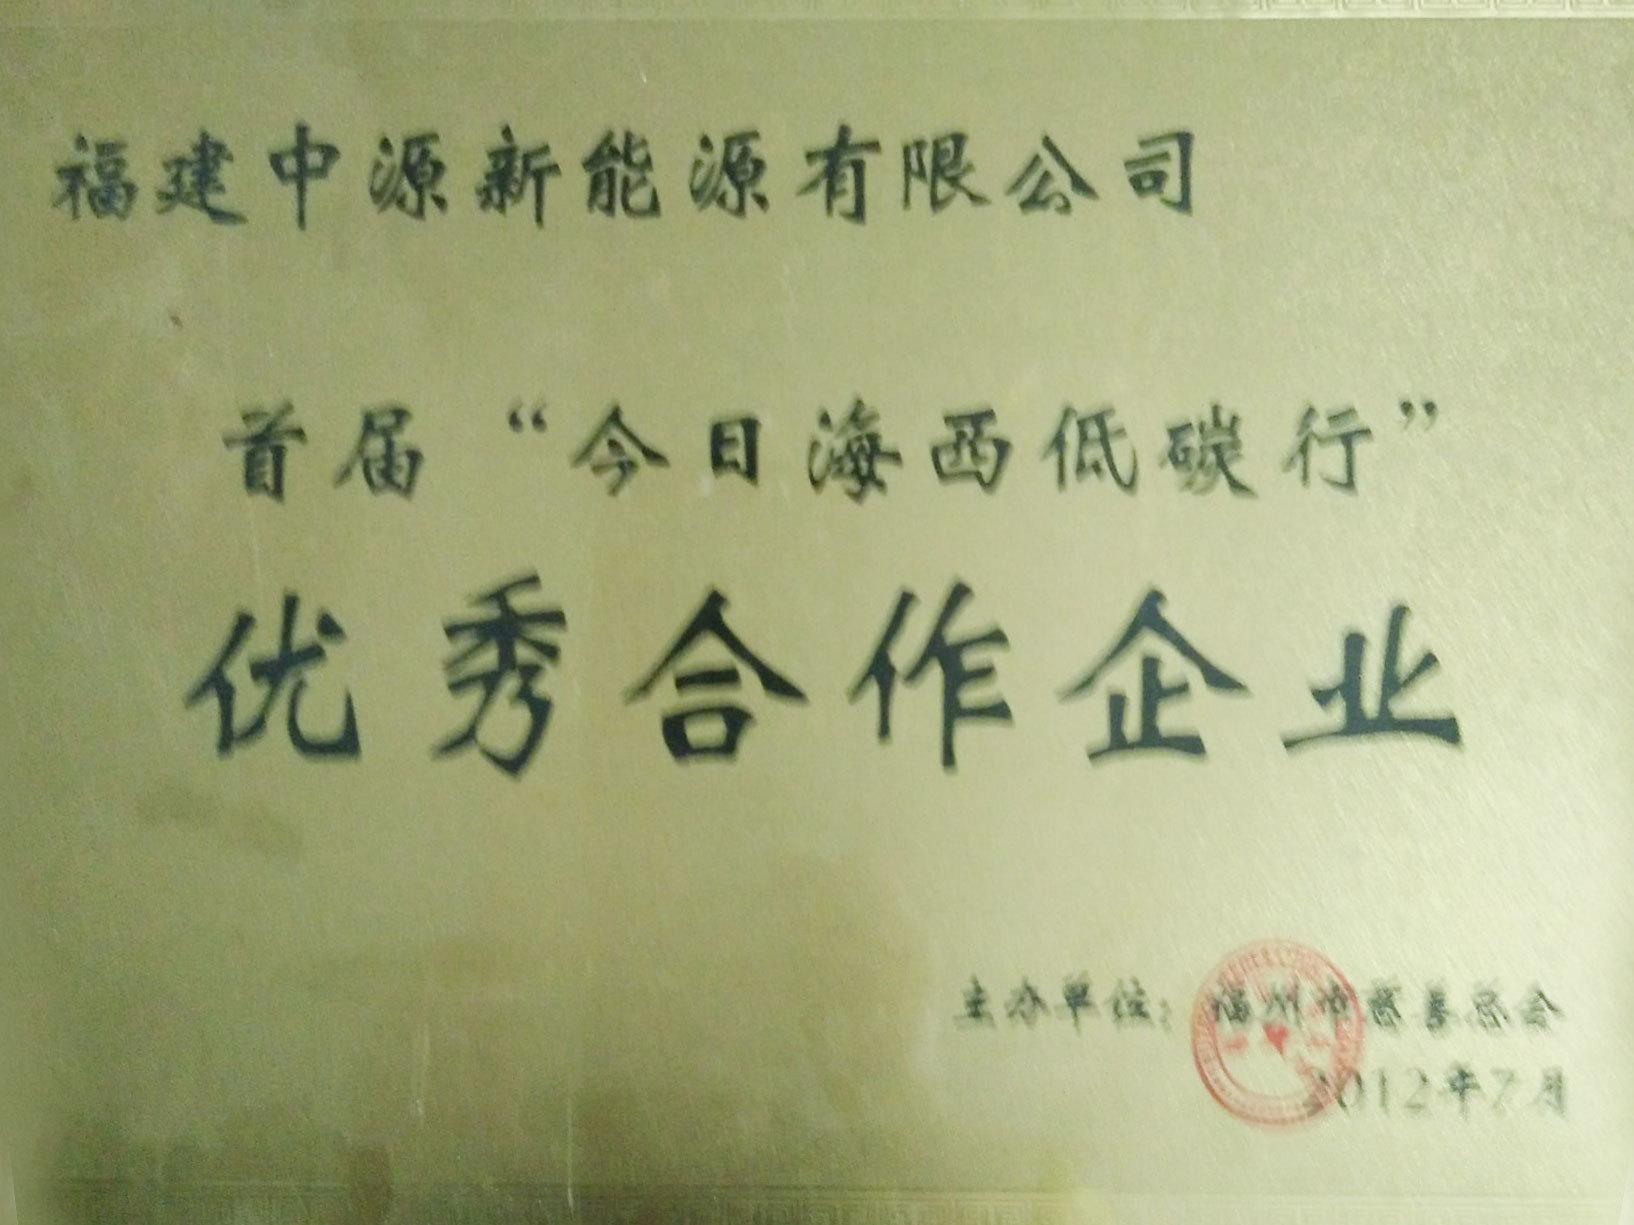 福建中源新能源有限公司
首届“今日海西低碳行”
优秀合作企业
主办单位：福州市慈善总会
2012年7月